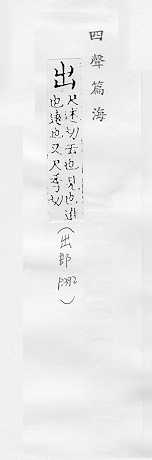 四聲篇海
出
尺述切去也見也進
也遠也又尺季切
(出部
P392)